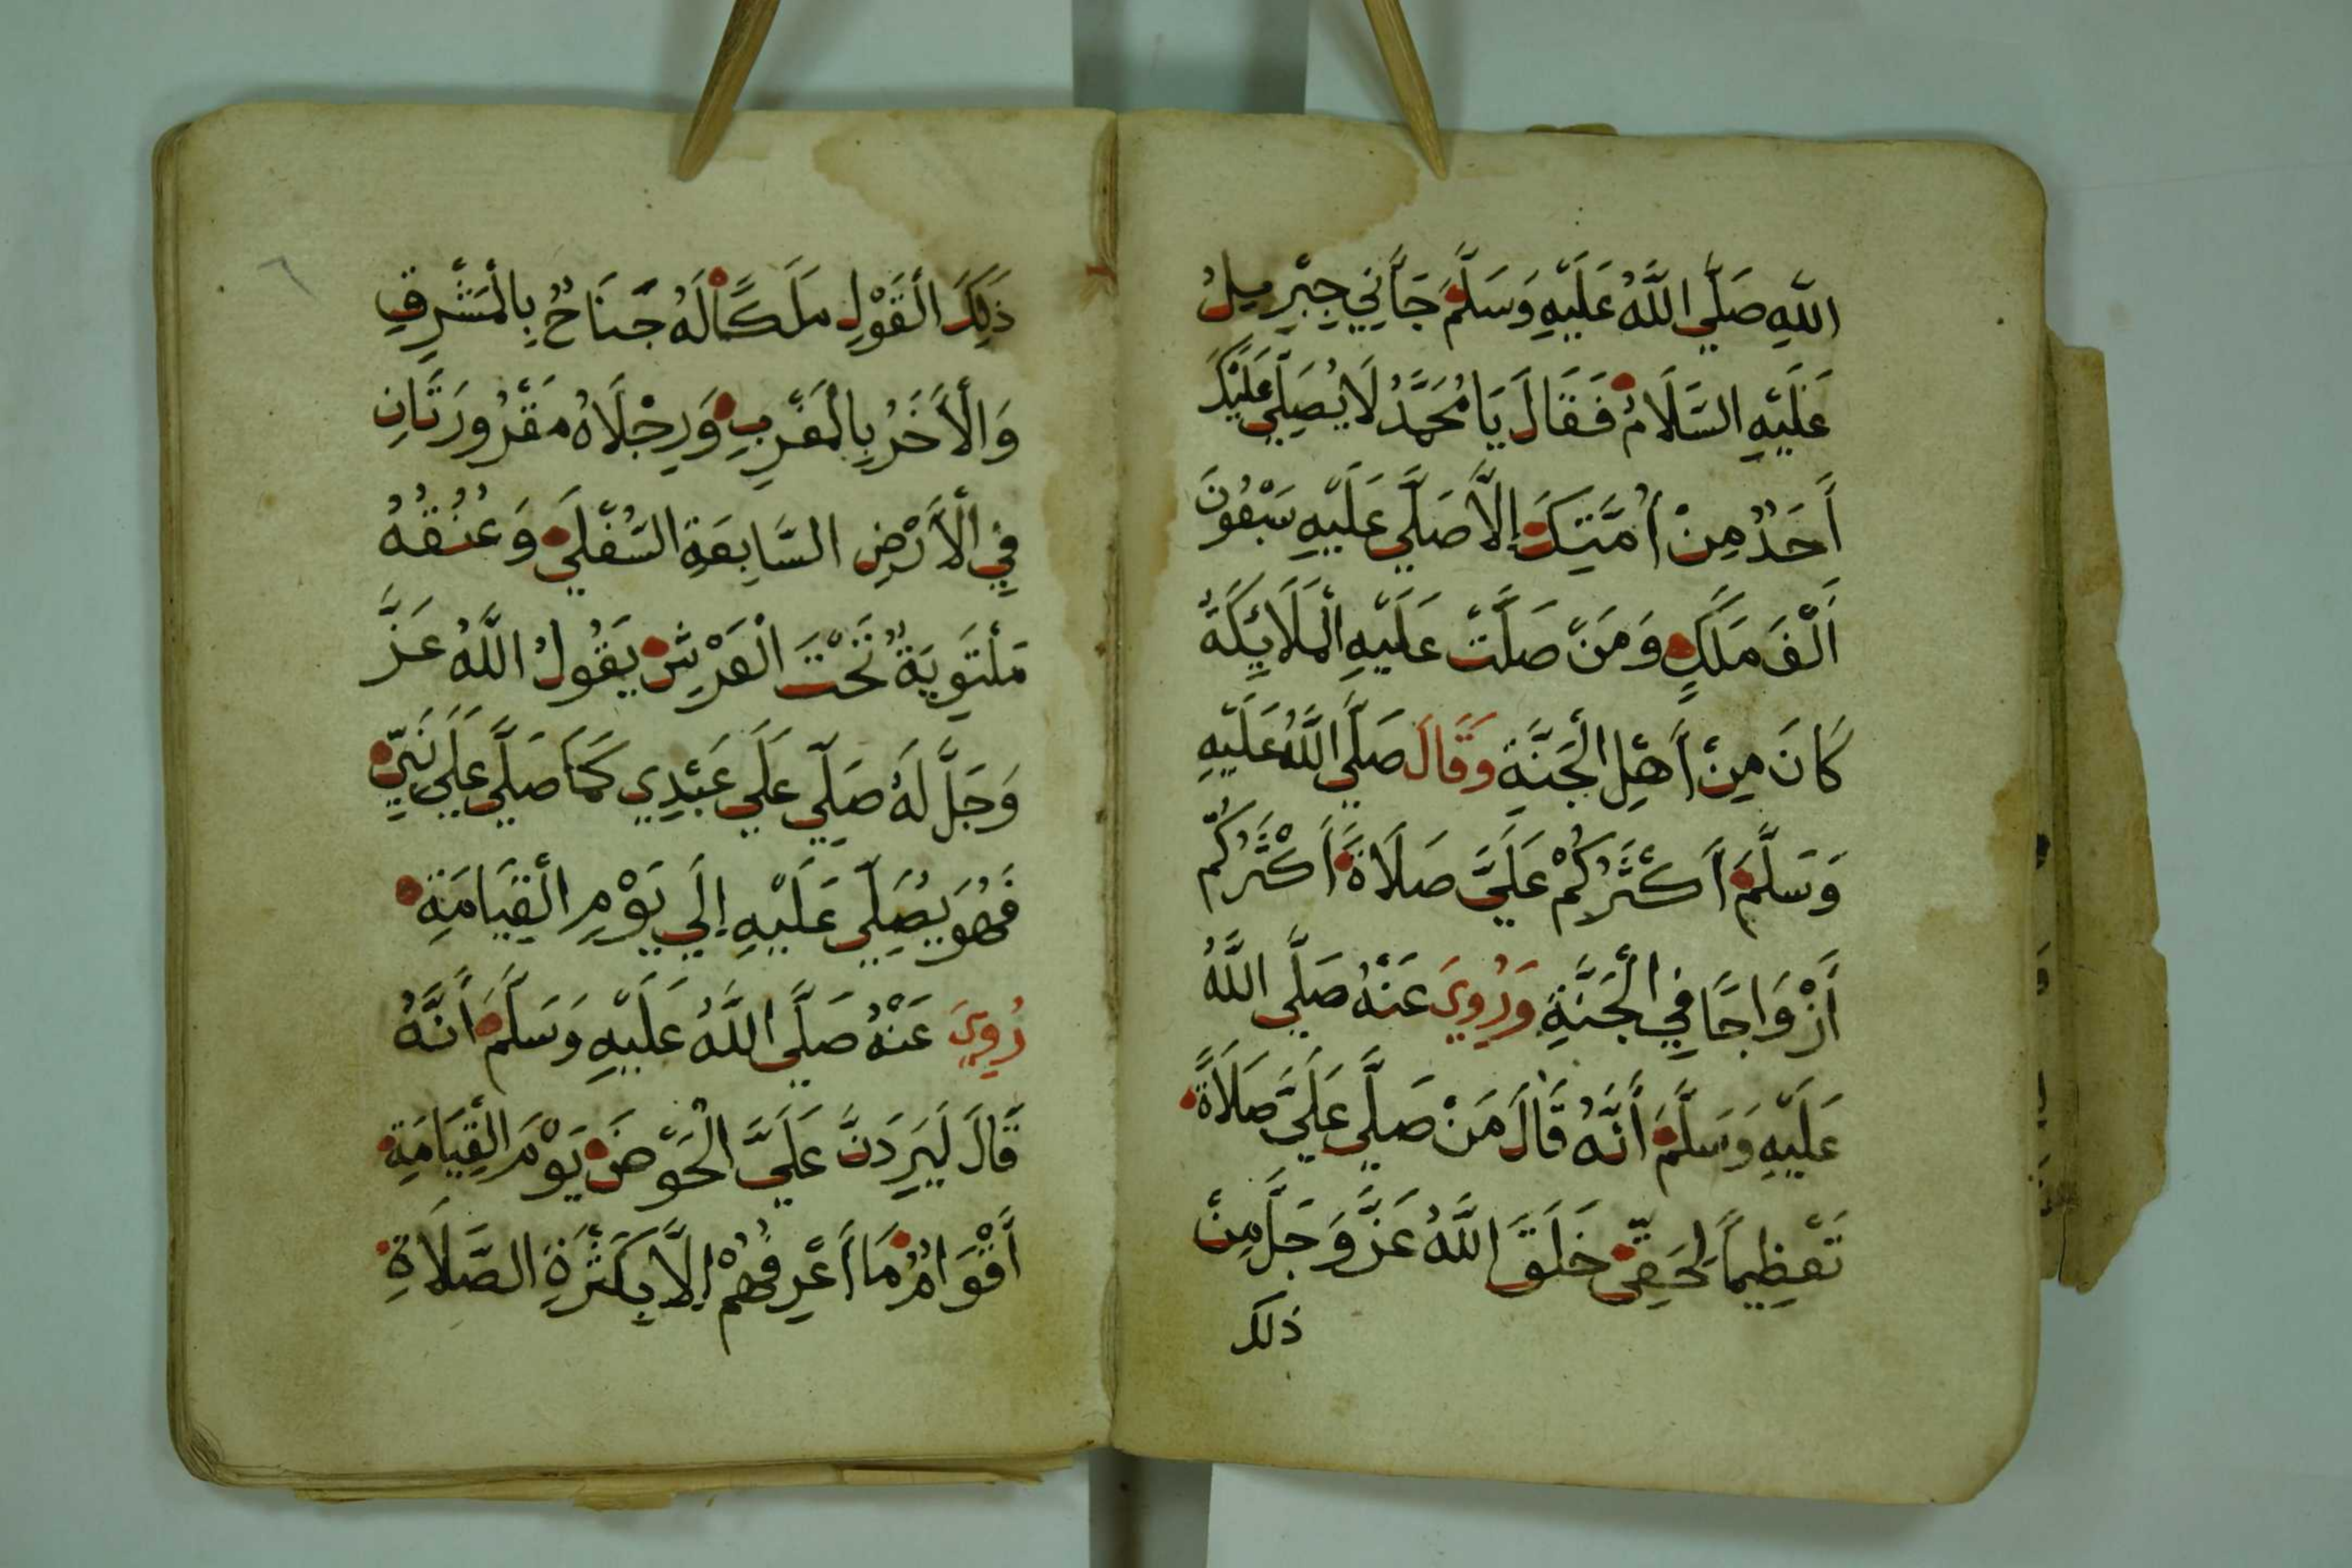 اللَّهِ صَلَّي اللَّهُ عَلَيْهِ وَسَلَّمَ جَآَنِي جِبْرِيلُ
عَلَيْهِ السَّلَامُ فَقَالَ يَا مُحَمَّدُ لَا يُصَلِّي عَلَيْكَ
أَحَدٌ مِنْ أُمَّتِكَ إِلَّا صَلَّي عَلَيْهِ سَبْعُونَ
أَلْفَ مَلَكٍ وَمَنْ صَلَّتْ عَلَيْهِ الْمَلَائِكَةُ
كَانَ مِنْ أَهْلِ الْجَنَّةِ وَقَالَ صَلَّي اللَّهُ عَلَيْهِ
وَسَلَّمَ أَكْثَرُكُمْ عَلَيَّ صَلَاةً أَكْثَرُكُمْ
أَزْوَاجًا فِي الْجَنَّةِ وَرُوِيَ عَنْهُ صَلَّي اللَّهُ
عَلَيْهِ وَسَلَّمَ أَنَّهُ قَالَ مَنْ صَلَّي عَلَيَّ صَلَاةً
تَعْظِيمًا لِحَقِّي خَلَقَ اللَّهُ عَزَّ وَجَلَّ مِنْ
ذلك
٦
ذَلِكَ الْقَوْلِ مَلَكًا لَهُ جَنَاحٌ بِالْمَشْرِقِ
وَالْأَخَرُ بِالْمَغْرِبِ وَرِجْلَاهُ مَقْرُورَتَانِ
فِي الْأَرْضِ السَّابِعَةِ السُّفْلَي وَعُنُقُهُ
مَلْتَوِيَةٌ تَحْتَ الْعَرْشِ يَقُولُ اللَّهُ عَزَّ
وَجَلَّ لَهُ صَلِّي عَلَي عَبْدِي كَمَا صَلَّي عَلَي نَبِيِّ
فَهُوَ يُصَلِّي عَلَيْهِ إِلَي يَوْمِ الْقِيَامَةِ
رُوِيَ عَنْهُ صَلَّي اللَّهُ عَلَيْهِ وَسَلَّمَ أَنَّهُ
قَالَ لَيَرِدَنَّ عَلَيَّ الْحَوْضَ يَوْمَ الْقِيَامَةِ
أَقْوَامٌ مَا أَعْرِفُهُمْ إِلَّا بِكَثْرَةِ الصَّلَاةِ